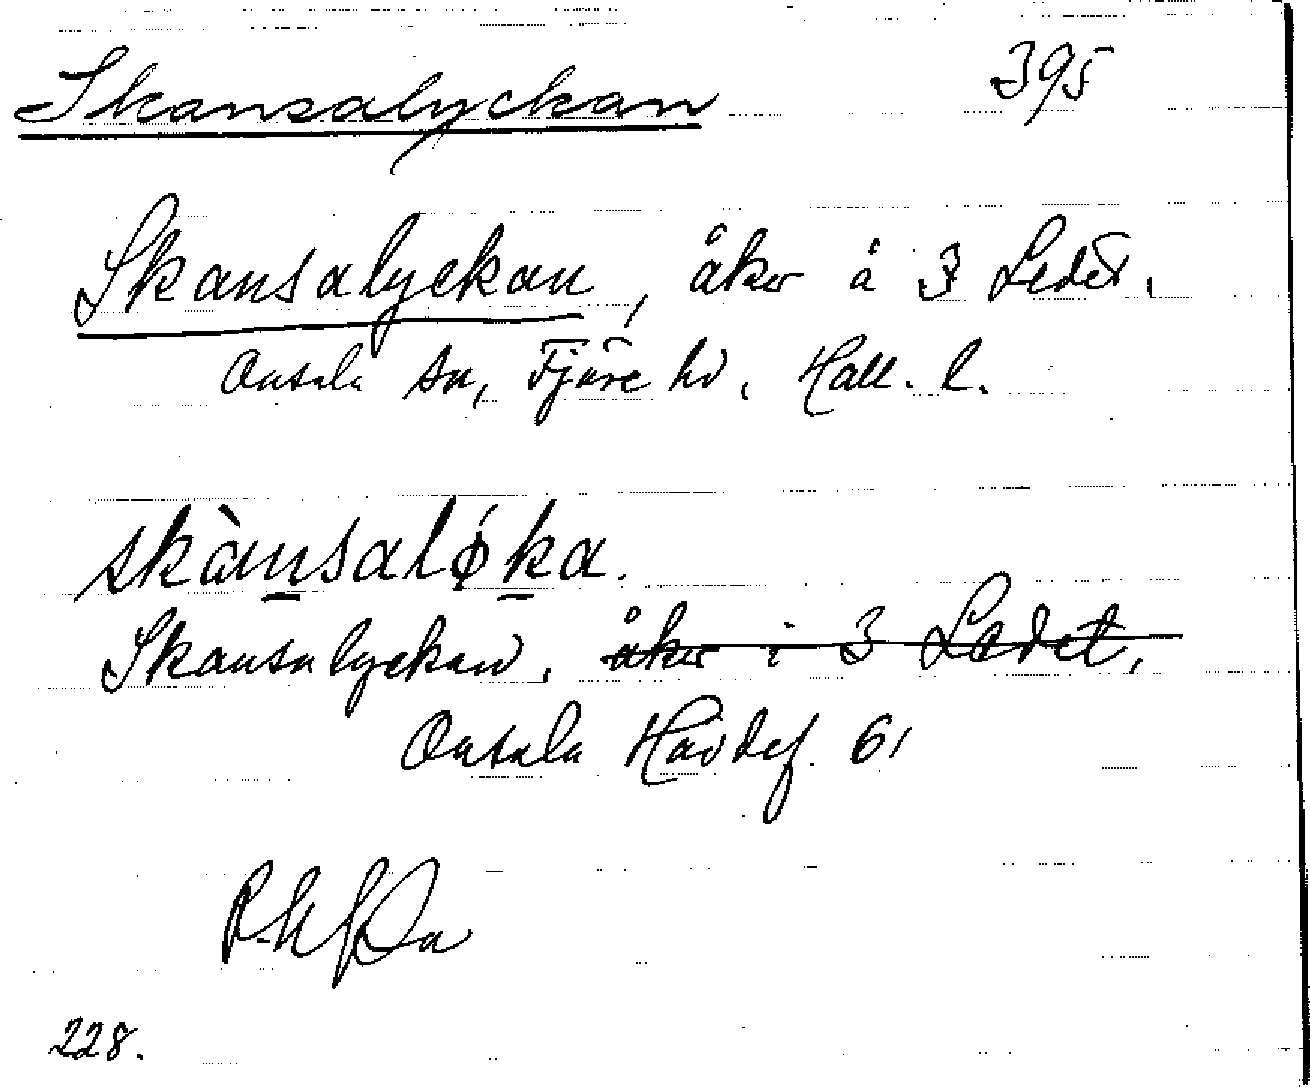 Skansalyckan 395
Skansalyckan, åker å 3 Ledet.
Onsala sn, Fjäre hd. Hall. l.
skànsaløka.
Skansalyckan. åker i 3 Ledet,
Onsala 61
228.